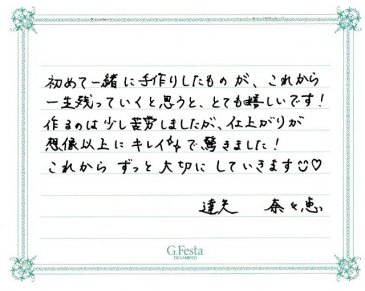 初めて一緒に手作りしたものが、これから
一生残っていくと思うと、とても嬉しいです!
作るのは少し苦労しましたが、仕上がりが
想像以上にキレイで驚きました!
これからずっと大切にしていきます☺♡
達矢 奈々恵
G.Festa